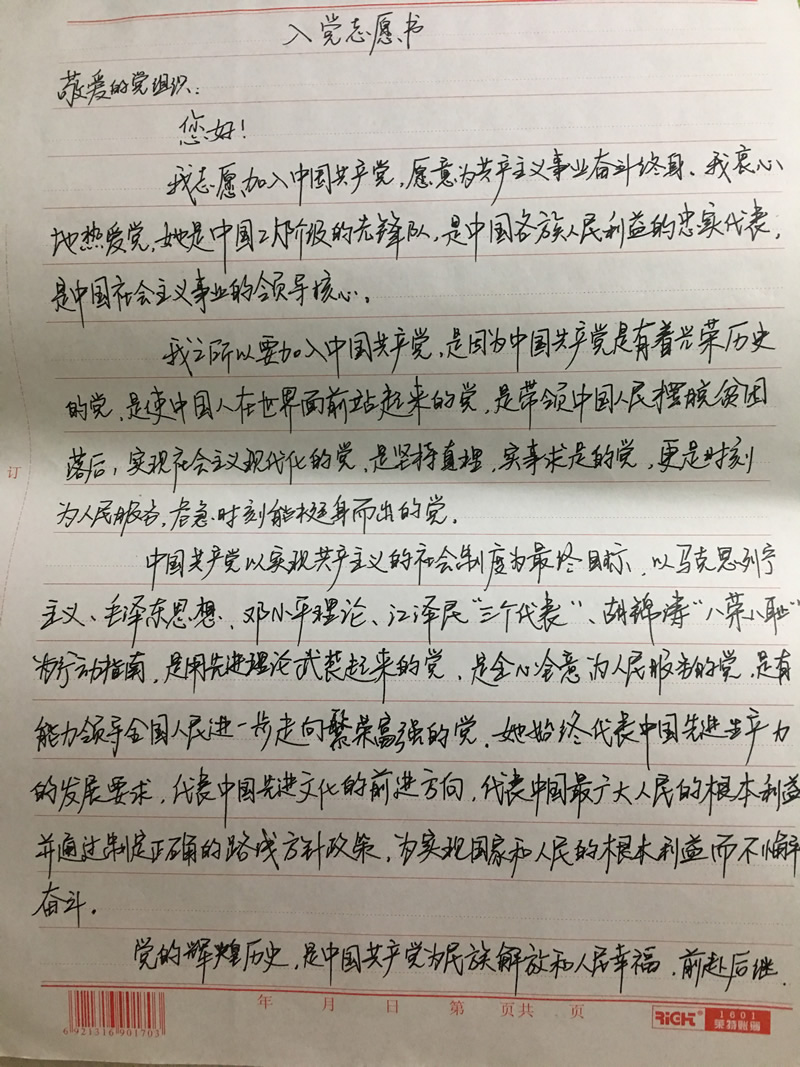 入党志愿书
敬爱的党组织：
您好！
我志愿加入中国共产党，愿意为共产主义事业奋斗终身。我衷心
地热爱党，她是中国工人阶级的先锋队，是中国各族人民利益的忠实代表，
是中国社会主义事业的领导核心。
我之所以要加入中国共产党，是因为中国共产党是有着光荣历史
的党，是使中国人在世界面前站起来的党，是带领中国人民摆脱贫困
落后，实现社会主义现代化的党，是坚持真理，实事求是的党，更是时刻
为人民服务，危急时刻能挺身而出的党。
中国共产党以实现共产主义的社会制度为最终目标，以马克思列宁
主义、毛泽东思想、邓小平理论、江泽民“三个代表”、胡锦涛“八荣八耻”
为行动指南，是用先进理论武装起来的党，是全心全意为人民服务的党，是有
能力领导全国人民进一步走向繁荣富强的党。她始终代表中国先进生产力
的发展要求，代表中国先进文化的前进方向，代表中国最广大人民的根本利益
并通过制定正确的路线方针政策，为实现国家和人民的根本利益而不懈
奋斗。
党的辉煌历史，是中国共产党为民族解放和人民幸福，前赴后继，
订
年 月 日 第 页共 页
6 921316 901703
RiGH 1601
莱特账簿